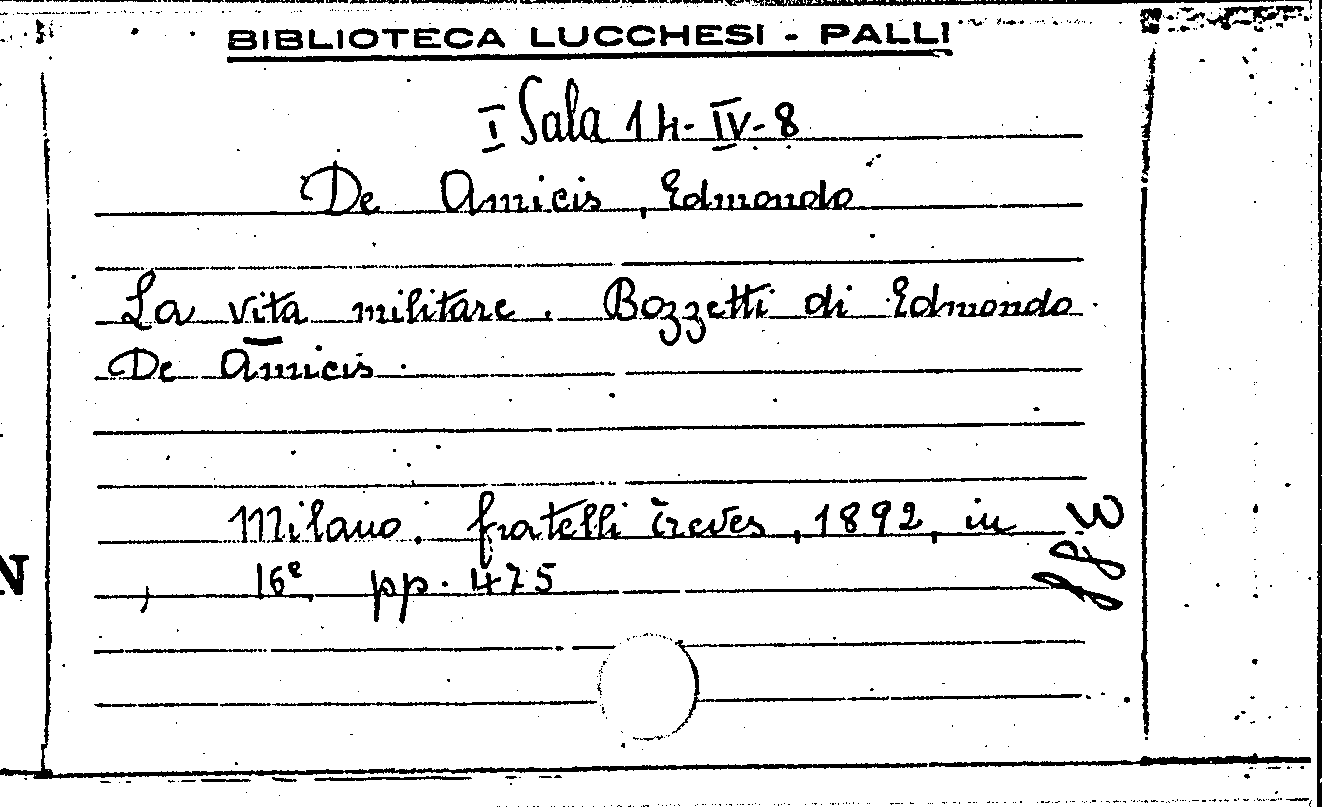 BIBLIOTECA LUCCHESI - PALLI
I Sala 14-IV-8
De Amicis, Edmondo
La vita militare. Bozzetti di Edmondo
De Amicis.
Milano. fratelli Treves, 1892, in
16º pp. 475
N